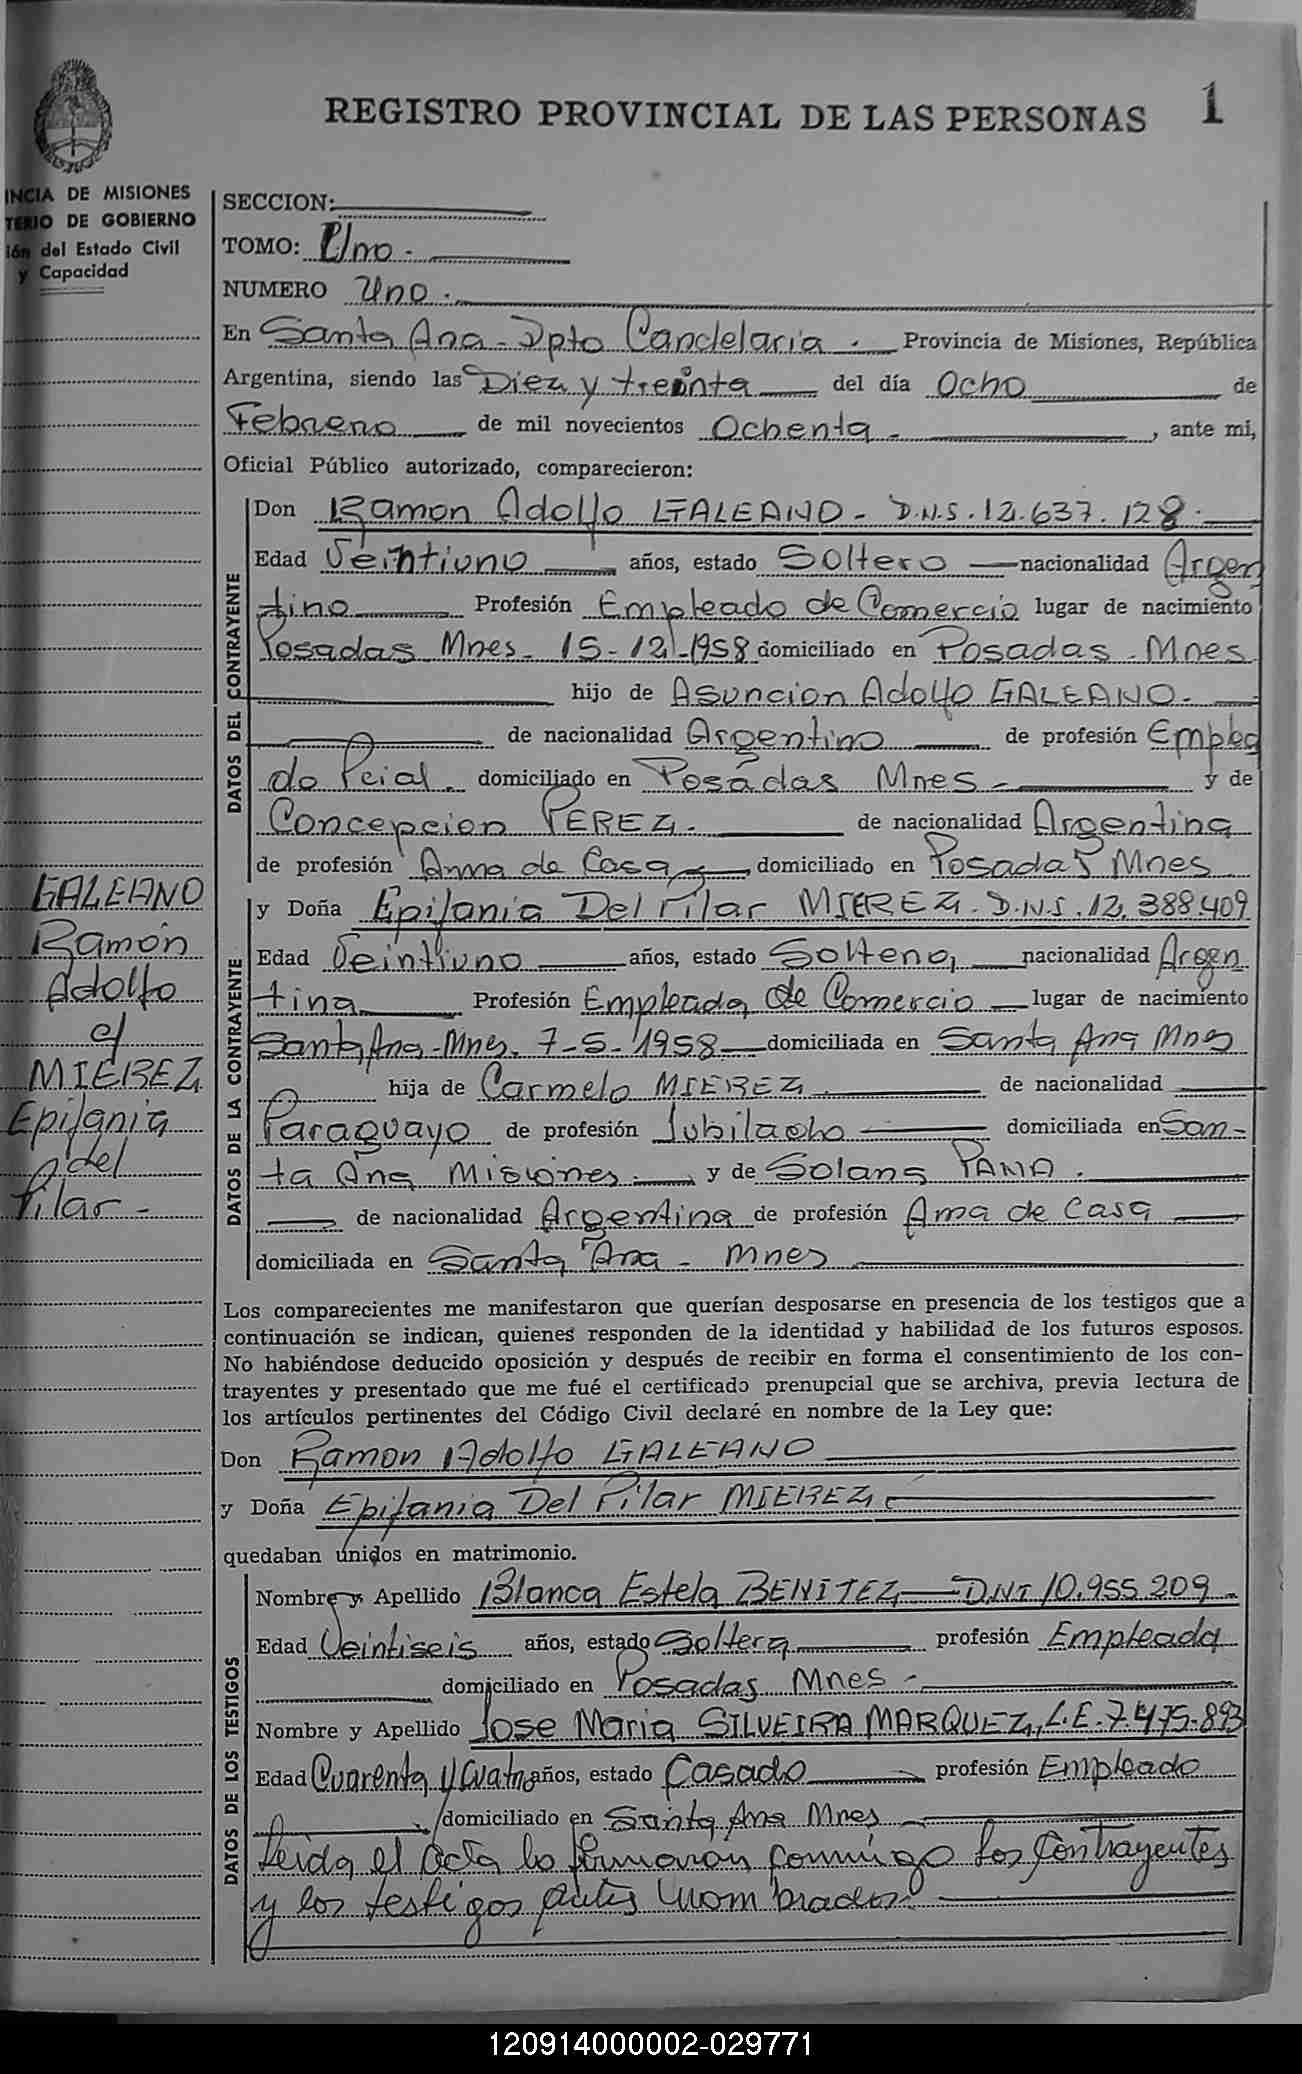 REGISTRO PROVINCIAL DE LAS PERSONAS 1
INCIA DE MISIONES
TERIO DE GOBIERNO
ión del Estado Civil
y Capacidad
SECCION:
TOMO: Uno.
NUMERO Uno.
En Santa Ana - Dpto Candelaria. Provincia de Misiones, República
Argentina, siendo las Diez y treinta del día Ocho de
Febrero de mil novecientos Ochenta - , ante mi,
Oficial Público autorizado, comparecieron:
DATOS DEL CONTRAYENTE
Don Ramon Adolfo GALEANO - D.N.I. 12.637.128.
Edad Veintiuno años, estado Soltero nacionalidad Argen
tino Profesión Empleado de Comercio lugar de nacimiento
Posadas Mnes - 15-12-1958 domiciliado en Posadas - Mnes
hijo de Asuncion Adolfo GALEANO.
de nacionalidad Argentino de profesión Emplea
do Pcial. domiciliado en Posadas Mnes - y de
Concepcion PEREZ. de nacionalidad Argentina
de profesión Ama de Casa domiciliado en Posadas Mnes
DATOS DE LA CONTRAYENTE
y Doña Epifania Del Pilar MIEREZ. D.N.I. 12.388.409
Edad Veintiuno años, estado Soltera, nacionalidad Argen
tina Profesión Empleada de Comercio lugar de nacimiento
Santa Ana - Mnes. 7-5-1958 domiciliada en Santa Ana Mnes
hija de Carmelo MIEREZ de nacionalidad
Paraguayo de profesión Jubilado domiciliada en San-
ta Ana Misiones. y de Solana PANA.
de nacionalidad Argentina de profesión Ama de Casa
domiciliada en Santa Ana - Mnes
GALEANO
Ramón
Adolfo
c/
MIEREZ
Epifania
del
Pilar -
Los comparecientes me manifestaron que querían desposarse en presencia de los testigos que a
continuación se indican, quienes responden de la identidad y habilidad de los futuros esposos.
No habiéndose deducido oposición y después de recibir en forma el consentimiento de los con-
trayentes y presentado que me fué el certificado prenupcial que se archiva, previa lectura de
los artículos pertinentes del Código Civil declaré en nombre de la Ley que:
Don Ramon Adolfo GALEANO
y Doña Epifania Del Pilar MIEREZ
quedaban unidos en matrimonio.
DATOS DE LOS TESTIGOS
Nombre y Apellido Blanca Estela BENITEZ DNI 10.955.209
Edad Veintiseis años, estado Soltera profesión Empleada
domiciliado en Posadas Mnes -
Nombre y Apellido Jose Maria SILVEIRA MARQUEZ, L.E. 7.475.893
Edad Cuarenta y Cuatro años, estado Casado profesión Empleado
domiciliado en Santa Ana Mnes
Leida el Acta la firmaron conmigo los Contrayentes
y los testigos antes nombrados.
120914000002-029771